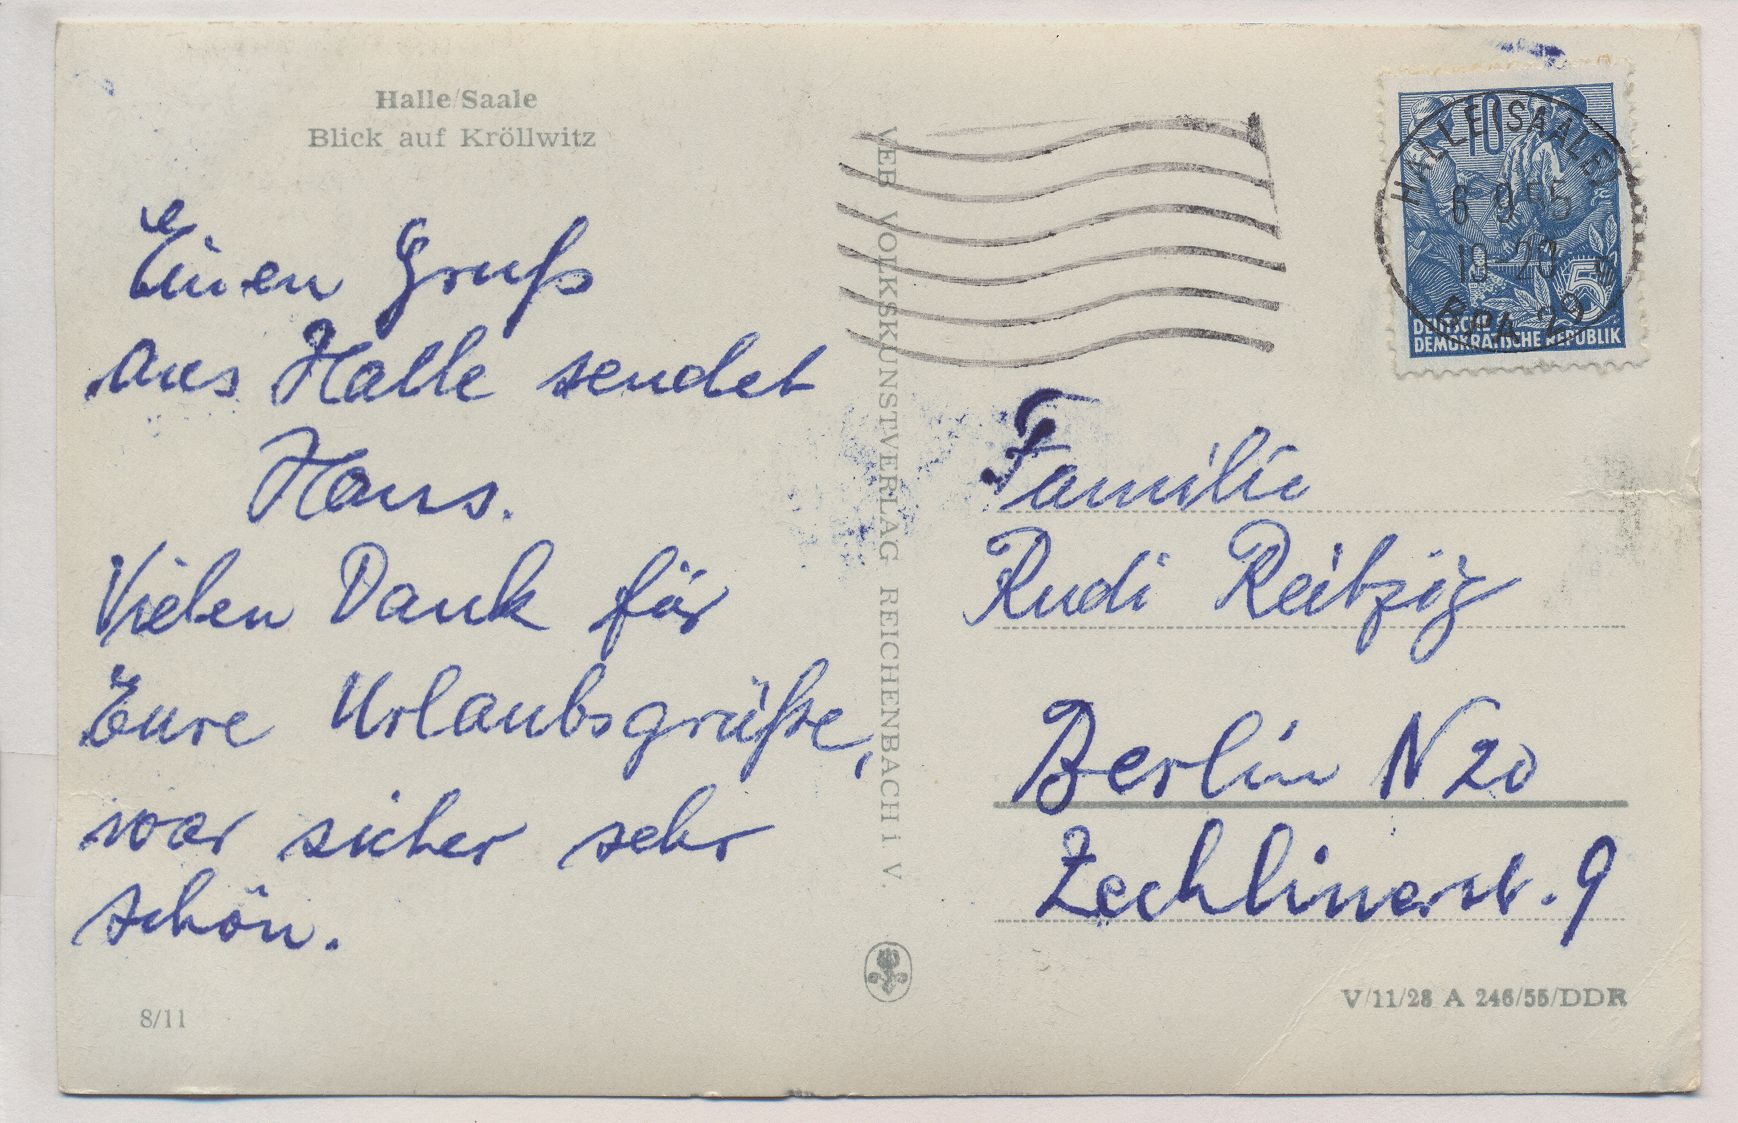 Halle/Saale
Blick auf Kröllwitz
Einen Gruß
aus Halle sendet
Hans.
Vielen Dank für
Eure Urlaubsgrüße,
war sicher sehr
schön.
8/11
VEB VOLKSKUNSTVERLAG REICHENBACH i. V.
10
5
DEUTSCHE
DEMOKRATISCHE REPUBLIK
HALLE (SAALE)
6 9 55
19-20
BPA 29
Familie
Rudi Reitzig
Berlin N 20
Zechlinerst. 9
V/11/28 A 246/55/DDR